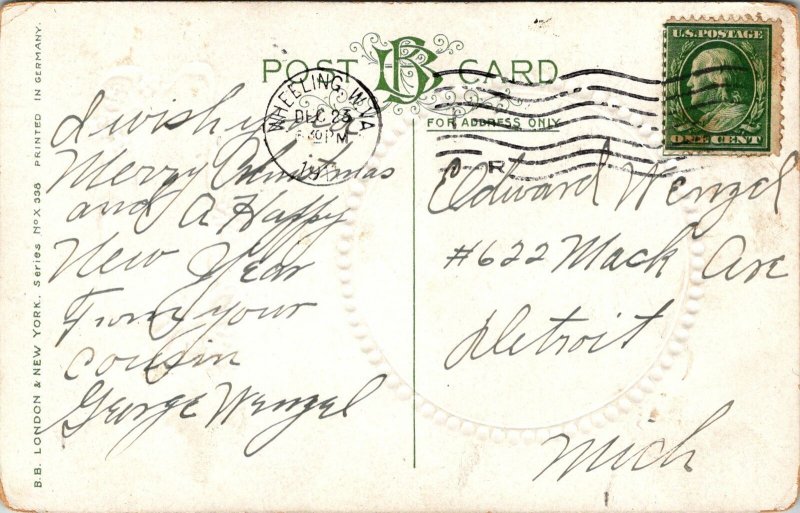 POST CARD
BB
FOR ADDRESS ONLY
U.S. POSTAGE
ONE CENT
WHEELING, W.VA
DEC 23
PM
R
I wish you a
Merry Christmas
and A Happy
New Year
From your
cousin
George Wenzel
Edward Wenzel
#622 Mack Ave
Detroit
Mich
B.B. LONDON & NEW YORK. Series No X 338 PRINTED IN GERMANY.